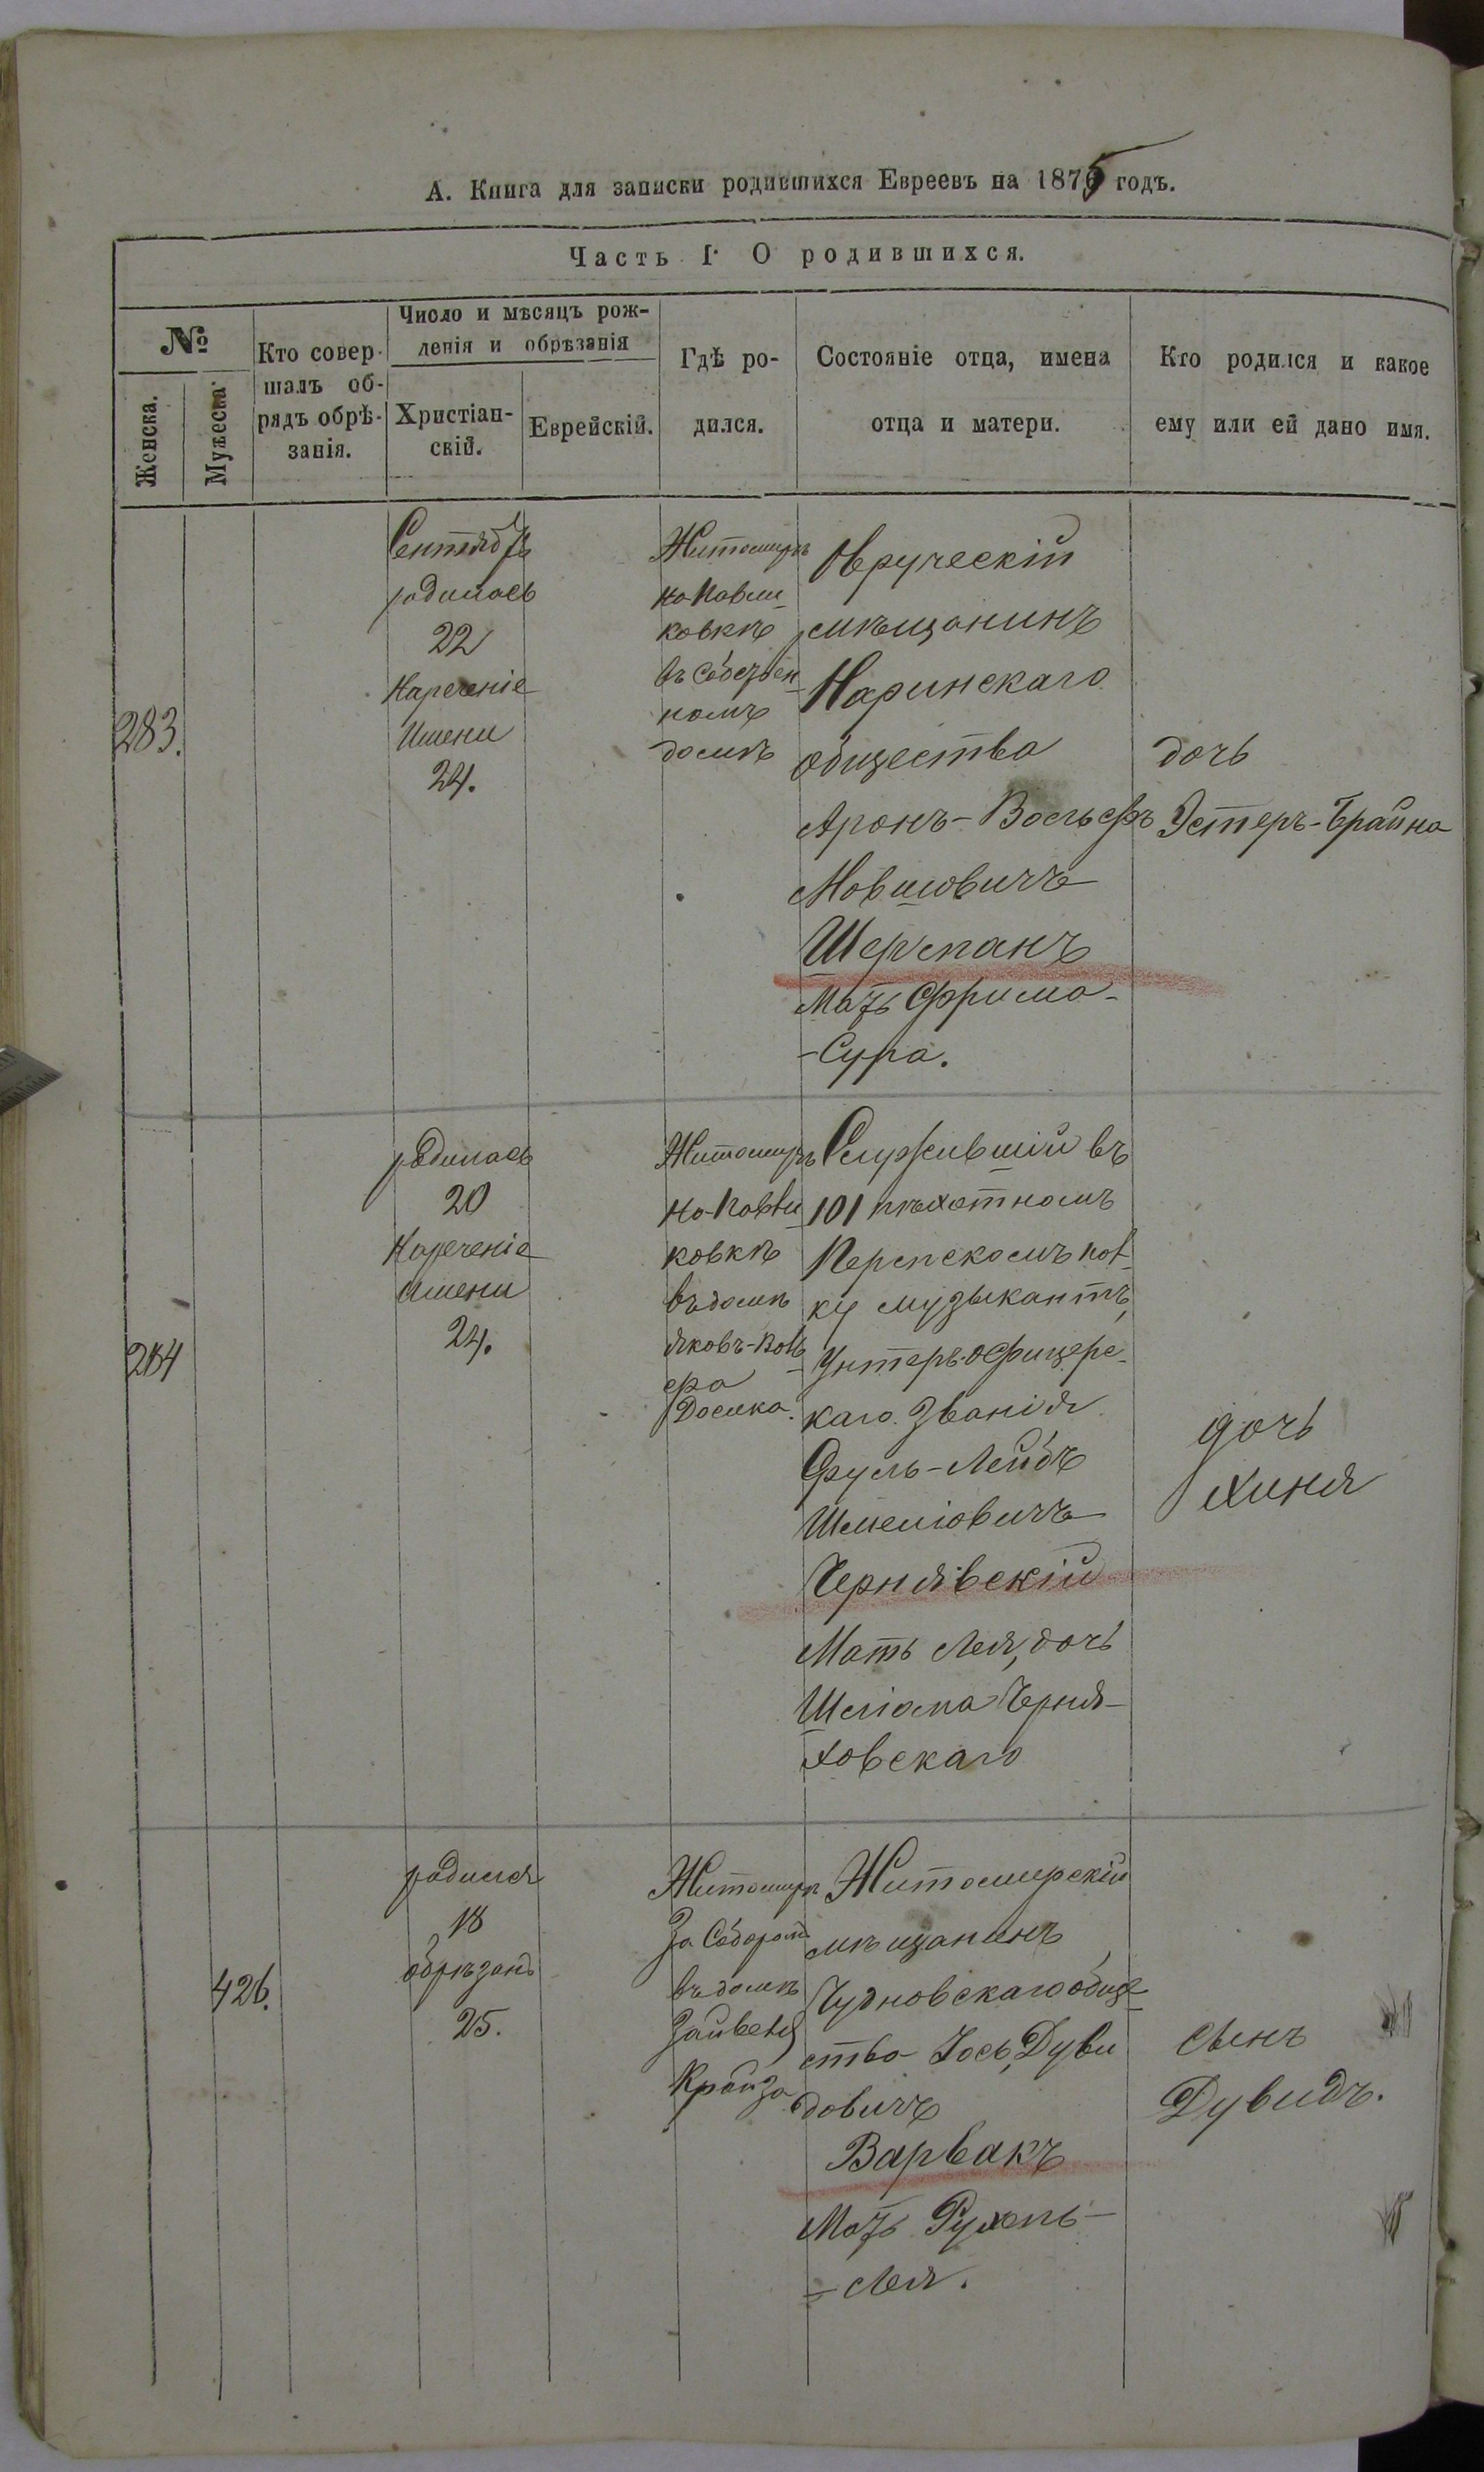 А. Книга для записки родившихся Евреевъ на 1875 годъ.
Часть I. О родившихся.
№
Женска.
Мужеска.
Кто совер-
шалъ об-
рядъ обрѣ-
занія.
Число и мѣсяцъ рож-
денія и обрѣзанія
Христіан-
скій.
Еврейскій.
Гдѣ ро-
дился.
Состояніе отца, имена
отца и матери.
Кто родился и какое
ему или ей дано имя.
283.
Сентябрь
родилась
22
Нареченіе
Имени
24.
Житомиръ
на Павли-
ковкѣ
въ собствен-
номъ
домѣ
Овруческій
мѣщанинъ
Наринскаго
общества
Аронъ-Вольфъ
Мовшовичъ
Шерманъ
Мать Фрима-
-Сура.
дочь
Эстеръ-Брайна
284
родилась
20
Нареченіе
Имени
24.
Житомиръ
на Павли-
ковкѣ
въ домѣ
Служившій въ
101 пѣхотномъ
Пермскомъ пол-
ку музыкантъ,
Унтеръ-офицерс-
каго званія
Сруль-Лейбъ
Шмеліовичъ
Чернявскій
Мать Лея, дочь
Шліома Черня-
ховскаго
дочь
Хиня
426.
родился
18
обрѣзанъ
25.
Житомиръ
За Соборомъ
въ домѣ
Крайза
Житомирскій
мѣщанинъ
Чудновскаго обще-
ства Іось Дуви
довичъ
Варвакъ
Мать Рухель-
-Лея.
сынъ
Дувидъ.